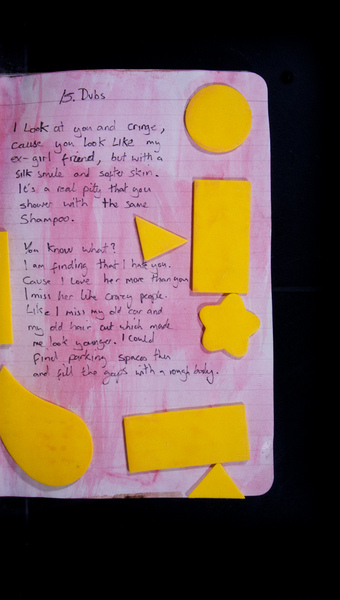 15. Dubs
I look at you and cringe,
cause you look like my
ex-girl friend, but with a
silk smile and softer skin.
It's a real pity that you
shower with the same
Shampoo.
You know what?
I am finding that I hate you.
Cause I love her more than you
I miss her like crazy people.
Like I miss my old car and
my old hair cut which made
me look younger. I could
find parking spaces then
and fill the gaps with a rough body.